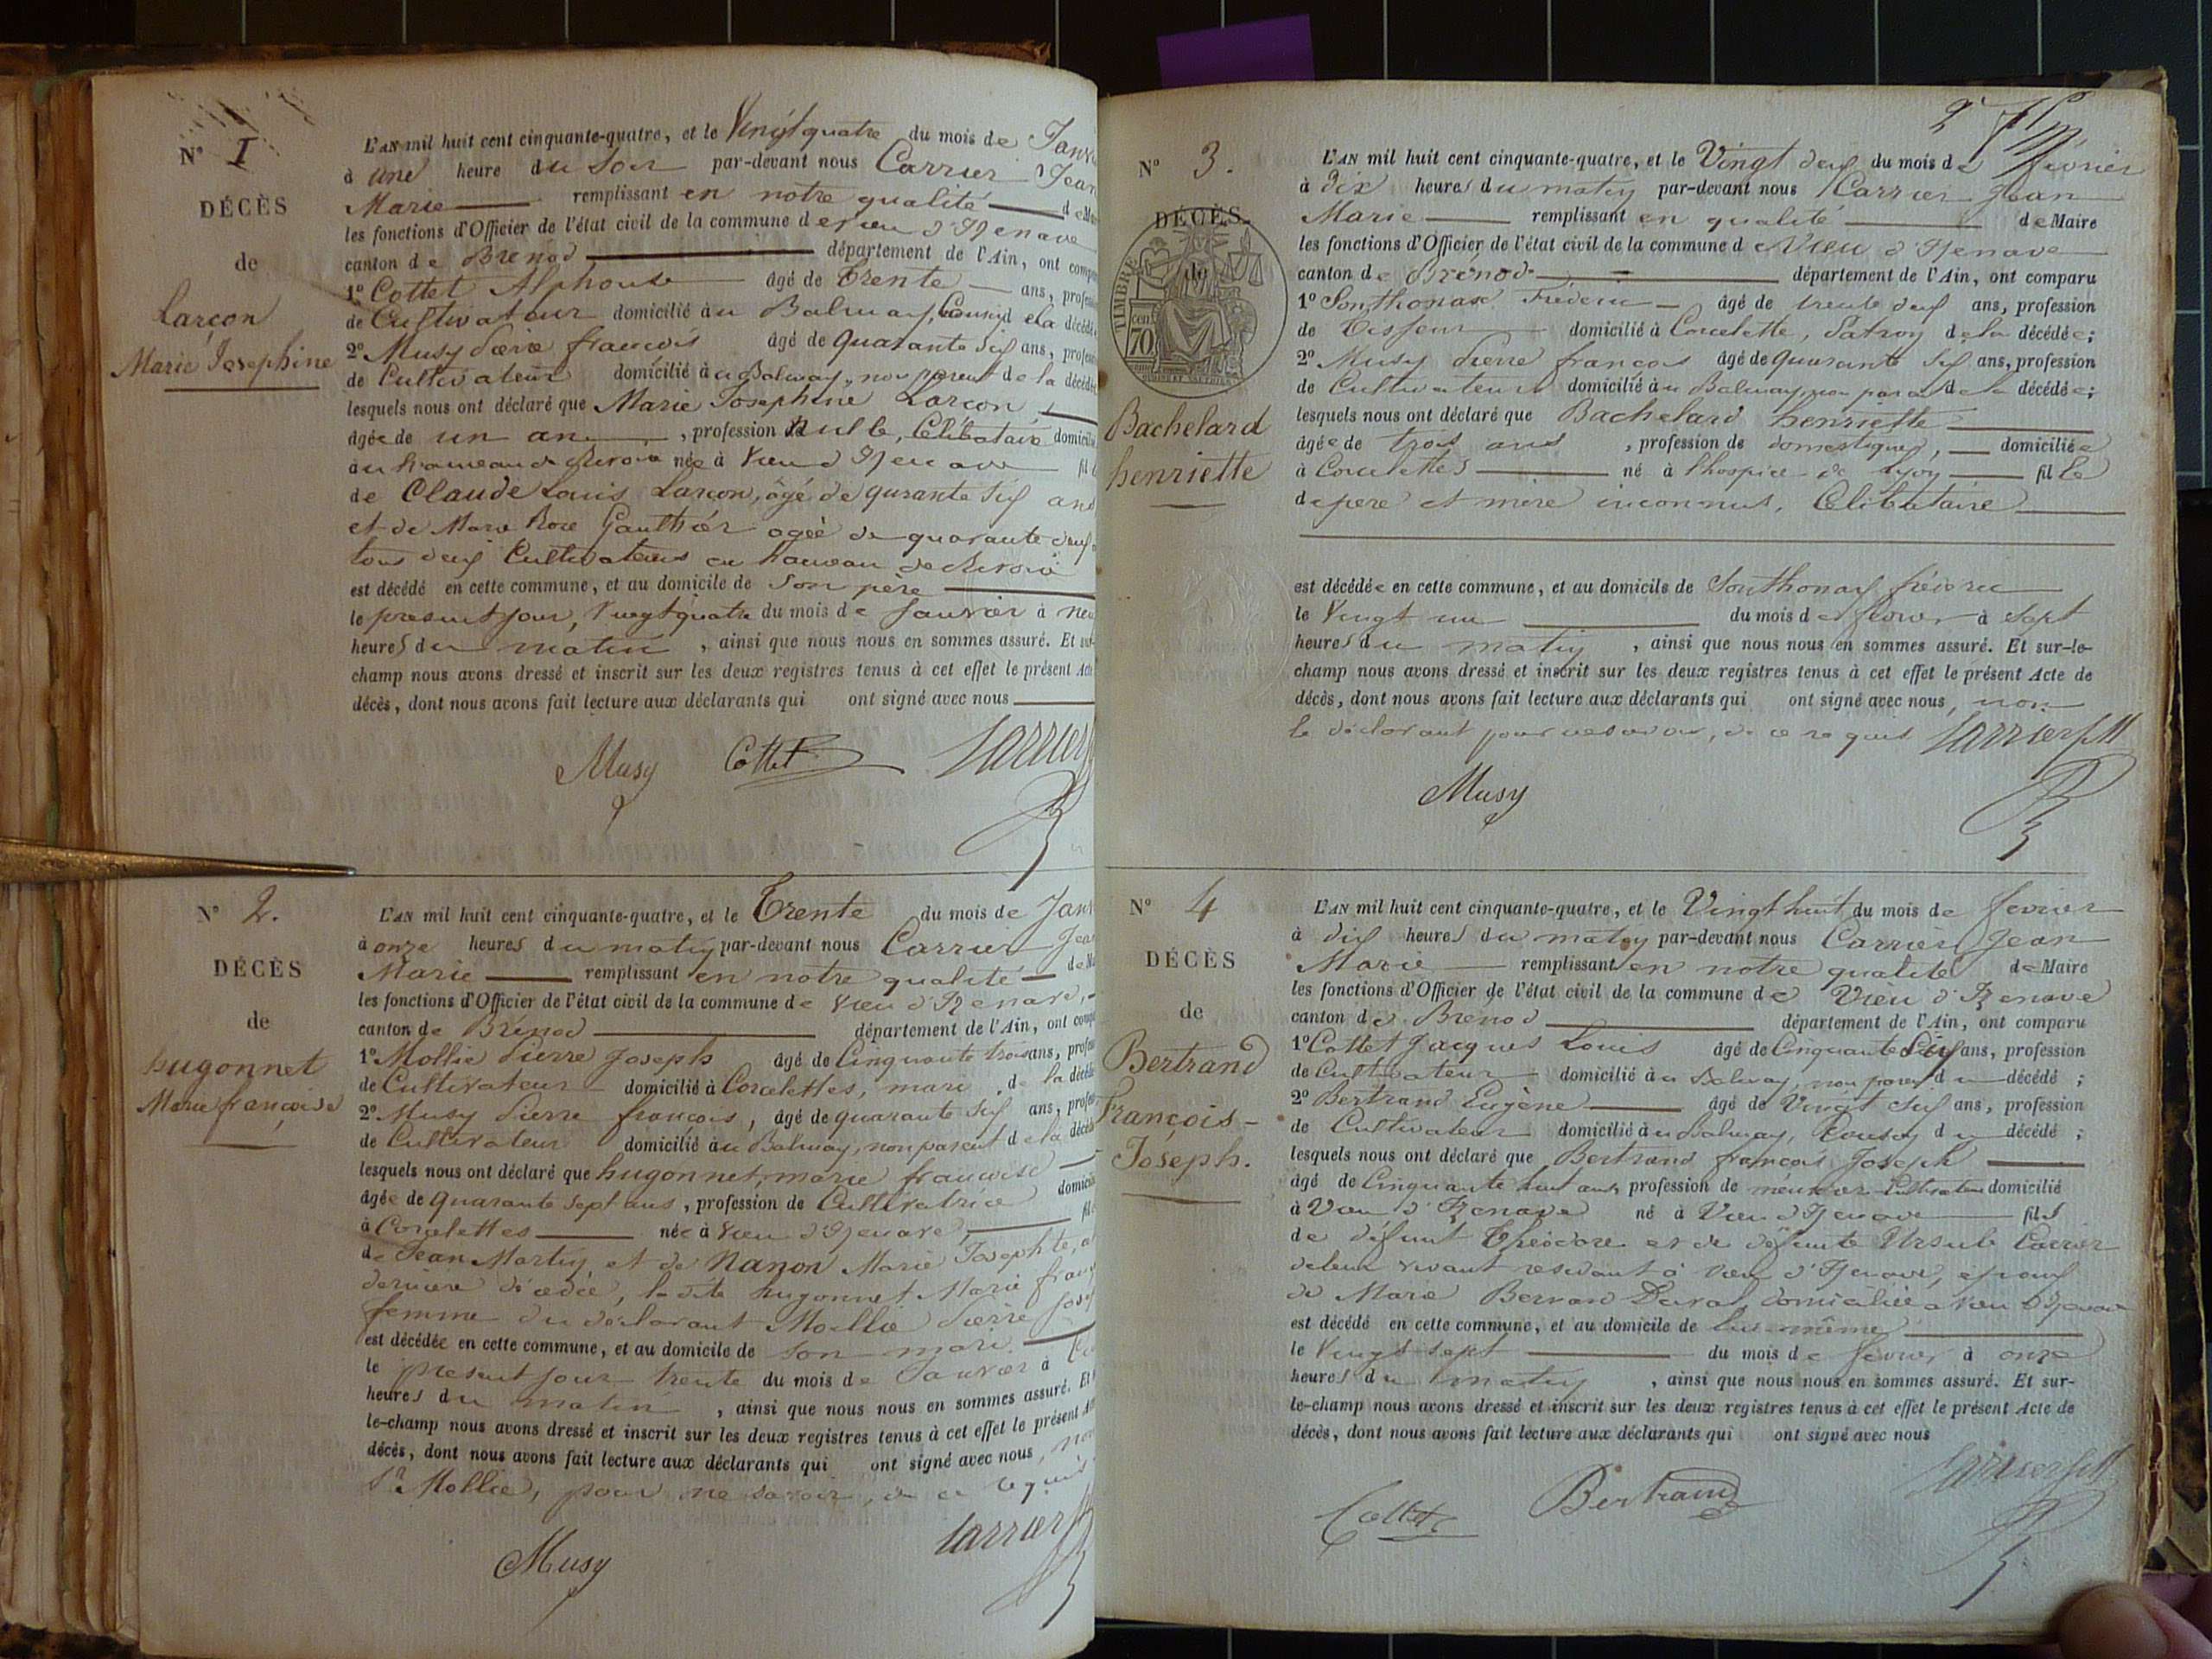 N° 1
DÉCÈS
de
Larçon
Marie Josephine
L'AN mil huit cent cinquante-quatre, et le Vingt quatre du mois de Janv
à une heure du Soir par-devant nous Carrier Jean
Marie remplissant en notre qualité de M
les fonctions d'Officier de l'état civil de la commune de vieu d'Izenave
canton de Brenod département de l'Ain, ont comp
1° Cottet Alphonse âgé de trente ans, profes
de Cultivateur domicilié au Balmay, de la décédé
2° Musy Pierre françois âgé de quarante Six ans, profes
de Cultivateur domicilié au Balmay, non parent de la décédé
lesquels nous ont déclaré que Marie Josephine Larçon
âgée de un an , profession nulle, Célibataire domicil
au hameau de née à Vieu d'Izenave fil
de Claude Louis Larçon, âgé de qurante Six ans
et de Marie Rose Gauthier agée de quarante
tous deux Cultivateurs au hameau de
est décédé en cette commune, et au domicile de Son père
le present jour, Vingt quatre du mois de Janvier à ne
heures du matin , ainsi que nous nous en sommes assuré. Et sur-
champ nous avons dressé et inscrit sur les deux registres tenus à cet effet le présent Acte
décès, dont nous avons fait lecture aux déclarants qui ont signé avec nous
Musy Cottet Carrier
N° 2.
DÉCÈS
de
hugonnet
Marie françoise
L'AN mil huit cent cinquante-quatre, et le Trente du mois de Janv
à onze heures du matin par-devant nous Carrier Jea
Marie remplissant en notre qualité de M
les fonctions d'Officier de l'état civil de la commune de vieu d'Izenave,
canton de Brénod département de l'Ain, ont comp
1° Mollie Pierre Joseph âgé de Cinquante trois ans, profes
de Cultivateur domicilié à Corcelettes, mari de la décédé
2° Musy Pierre françois, âgé de quarante Six ans, profes
de Cultivateur domicilié au Balmay, non parent de la décéd
lesquels nous ont déclaré que hugonnet, marie françoise
âgée de quarante sept ans, profession de Cultivatrice domicil
à Corcelettes née à Vieu d'Izenave, fil
de Jean Martin et de Nanon Marie Josephte,
derniere décedée, la dite hugonnet Marie fran
femme du déclarant Mollie Pierre Jos
est décédée en cette commune, et au domicile de son mari
le présent jour trente du mois de Janvier à
heures du matin , ainsi que nous nous en sommes assuré. Et
le-champ nous avons dressé et inscrit sur les deux registres tenus à cet effet le présent
décès, dont nous avons fait lecture aux déclarants qui ont signé avec nous, non
Sr Mollie, pour ne savoir, de ce requis
Musy Carrier
2
N° 3.
DÉCÈS
de
TIMBRE
70 cen
Bachelard
henriette
L'AN mil huit cent cinquante-quatre, et le Vingt deux du mois de février
à dix heures du matin par-devant nous Carrier Jean
Marie remplissant en qualité de Maire
les fonctions d'Officier de l'état civil de la commune de Vieu d'Izenave
canton de Brénod département de l'Ain, ont comparu
1° Sonthonax Fréderic âgé de trente deux ans, profession
de Tisseur domicilié à Corcelette, Patron de la décédée;
2° Musy Pierre françois âgé de quarante Six ans, profession
de Cultivateur domicilié au Balmay, non parent de la décédée;
lesquels nous ont déclaré que Bachelard henriette
âgée de trois ans , profession de domestique, domiciliée
à Corcelettes né à l'hospice de Lyon fille
de pere et mère inconnus, Célibataire
est décédée en cette commune, et au domicile de Sonthonax fréderic
le Vingt un du mois de février à Sept
heures du matin , ainsi que nous nous en sommes assuré. Et sur-le-
champ nous avons dressé et inscrit sur les deux registres tenus à cet effet le présent Acte de
décès, dont nous avons fait lecture aux déclarants qui ont signé avec nous, non
le déclarant pour ne savoir, de ce requis Carrier
Musy
N° 4
DÉCÈS
de
Bertrand
François-
Joseph.
L'AN mil huit cent cinquante-quatre, et le Vingt huit du mois de fevrier
à dix heures du matin par-devant nous Carrier Jean
Marie remplissant en notre qualité de Maire
les fonctions d'Officier de l'état civil de la commune de Vieu d'Izenave
canton de Brenod département de l'Ain, ont comparu
1° Cottet Jacques Louis âgé de Cinquante Six ans, profession
de Cultivateur domicilié au Balmay, non parent du décédé ;
2° Bertrand Eugène âgé de Vingt Six ans, profession
de Cultivateur domicilié au Balmay, Cousin du décédé ;
lesquels nous ont déclaré que Bertrand françois Joseph
âgé de Cinquante huit ans, profession de meunier Cultivateur domicilié
à Vieu d'Izenave né à Vieu d'Izenave fils
de défunt Théodore et de défunte Ursule Carrier
de leur vivant residant à vieu d'Izenave, époux
de Marie Bernard Duval domiciliée a vieu d'Izenave
est décédé en cette commune, et au domicile de lui même
le Vingt sept du mois de février à onze
heures du matin , ainsi que nous nous en sommes assuré. Et sur-
le-champ nous avons dressé et inscrit sur les deux registres tenus à cet effet le présent Acte de
décès, dont nous avons fait lecture aux déclarants qui ont signé avec nous
Cottet Bertrand Carrier